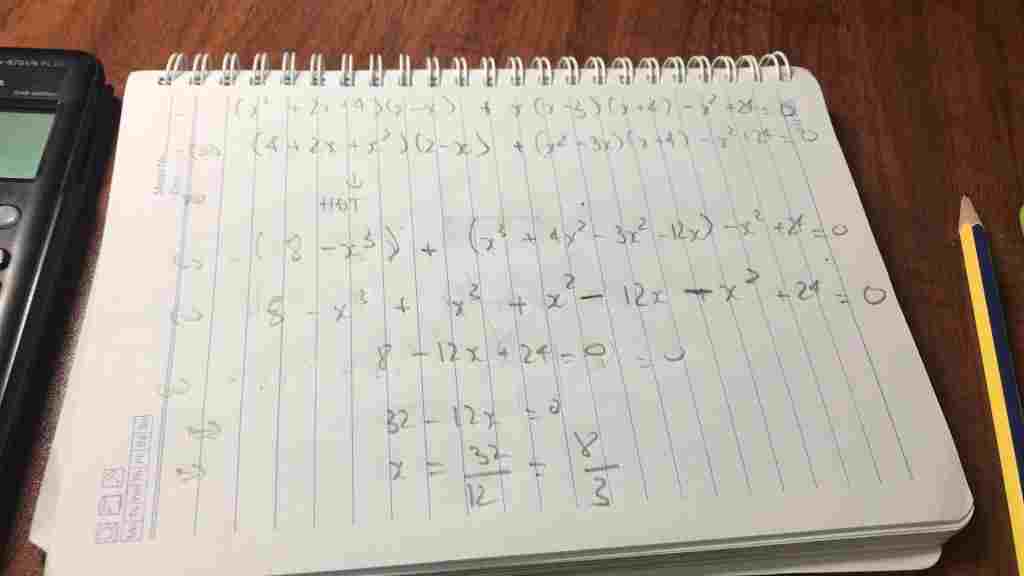 (x² + 2x + 4)(2 - x) + x(x - 3)(x + 4) - x² + 24 = 0
(4 + 2x + x²)(2 - x) + (x² - 3x)(x + 4) - x² + 24 = 0
↓
HĐT
(8 - x³) + (x³ + 4x² - 3x² - 12x) - x² + 24 = 0
8 - x³ + x³ + x² - 12x - x² + 24 = 0
8 - 12x + 24 = 0 = 0
32 - 12x = 0
x = 32/12 = 8/3